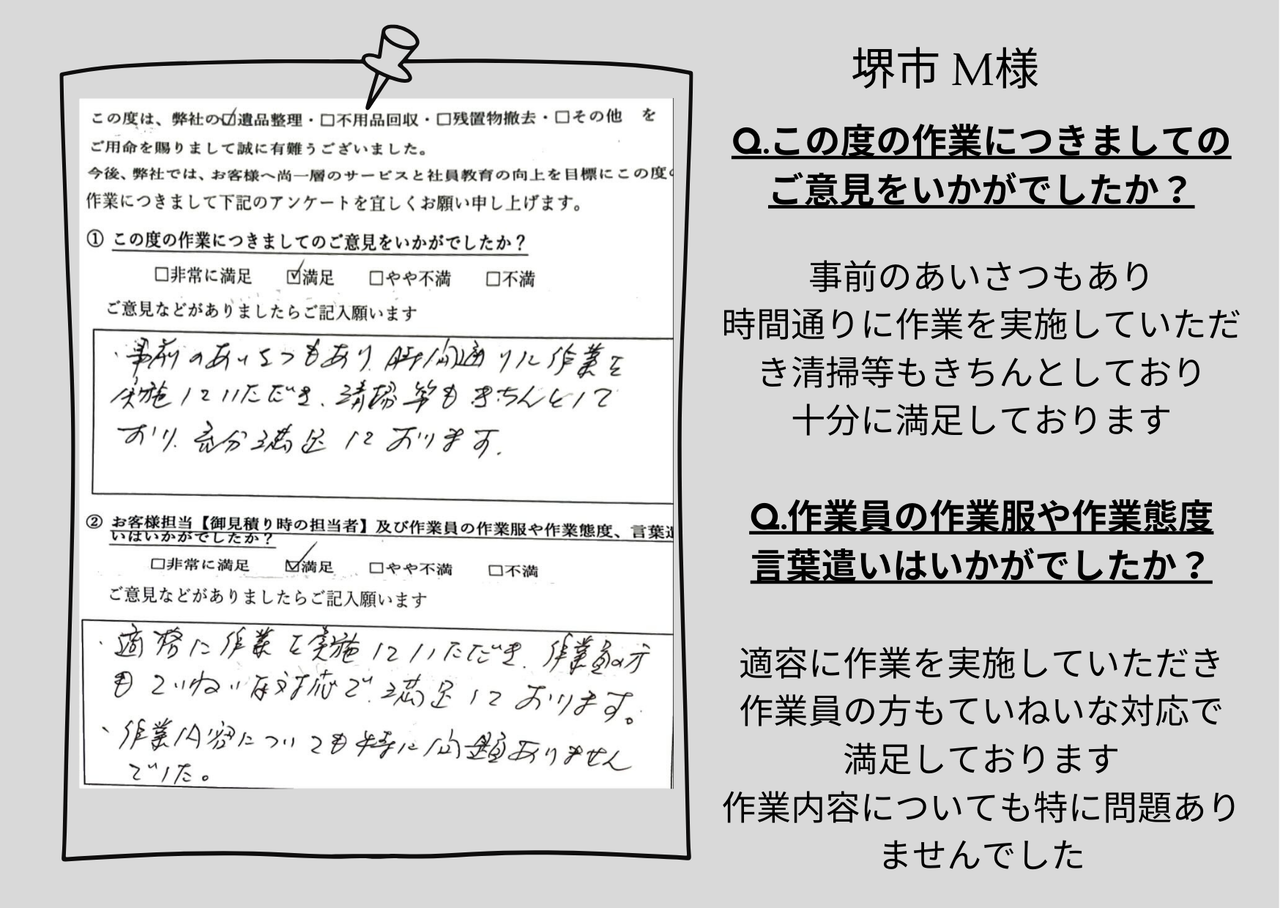 この度は、弊社の☑遺品整理・□不用品回収・□残置物撤去・□その他　を
ご用命を賜りまして誠に有難うございました。
今後、弊社では、お客様へ尚一層のサービスと社員教育の向上を目標にこの度の
作業につきまして下記のアンケートを宜しくお願い申し上げます。
① この度の作業につきましてのご意見をいかがでしたか？
□非常に満足　☑満足　□やや不満　□不満
ご意見などがありましたらご記入願います
・事前のあいさつもあり、時間通りに作業を
実施していただき、清掃等もきちんとして
おり、充分満足しております。
② お客様担当【御見積り時の担当者】及び作業員の作業服や作業態度、言葉遣
いはいかがでしたか？
□非常に満足　☑満足　□やや不満　□不満
ご意見などがありましたらご記入願います
・適格に作業を実施していただき、作業員の方
もていねいな対応で、満足しております。
・作業内容についても特に問題ありません
でした。
堺市 M様
Q.この度の作業につきましての
ご意見をいかがでしたか？
事前のあいさつもあり
時間通りに作業を実施していただ
き清掃等もきちんとしており
十分に満足しております
Q.作業員の作業服や作業態度
言葉遣いはいかがでしたか？
適容に作業を実施していただき
作業員の方もていねいな対応で
満足しております
作業内容についても特に問題あり
ませんでした